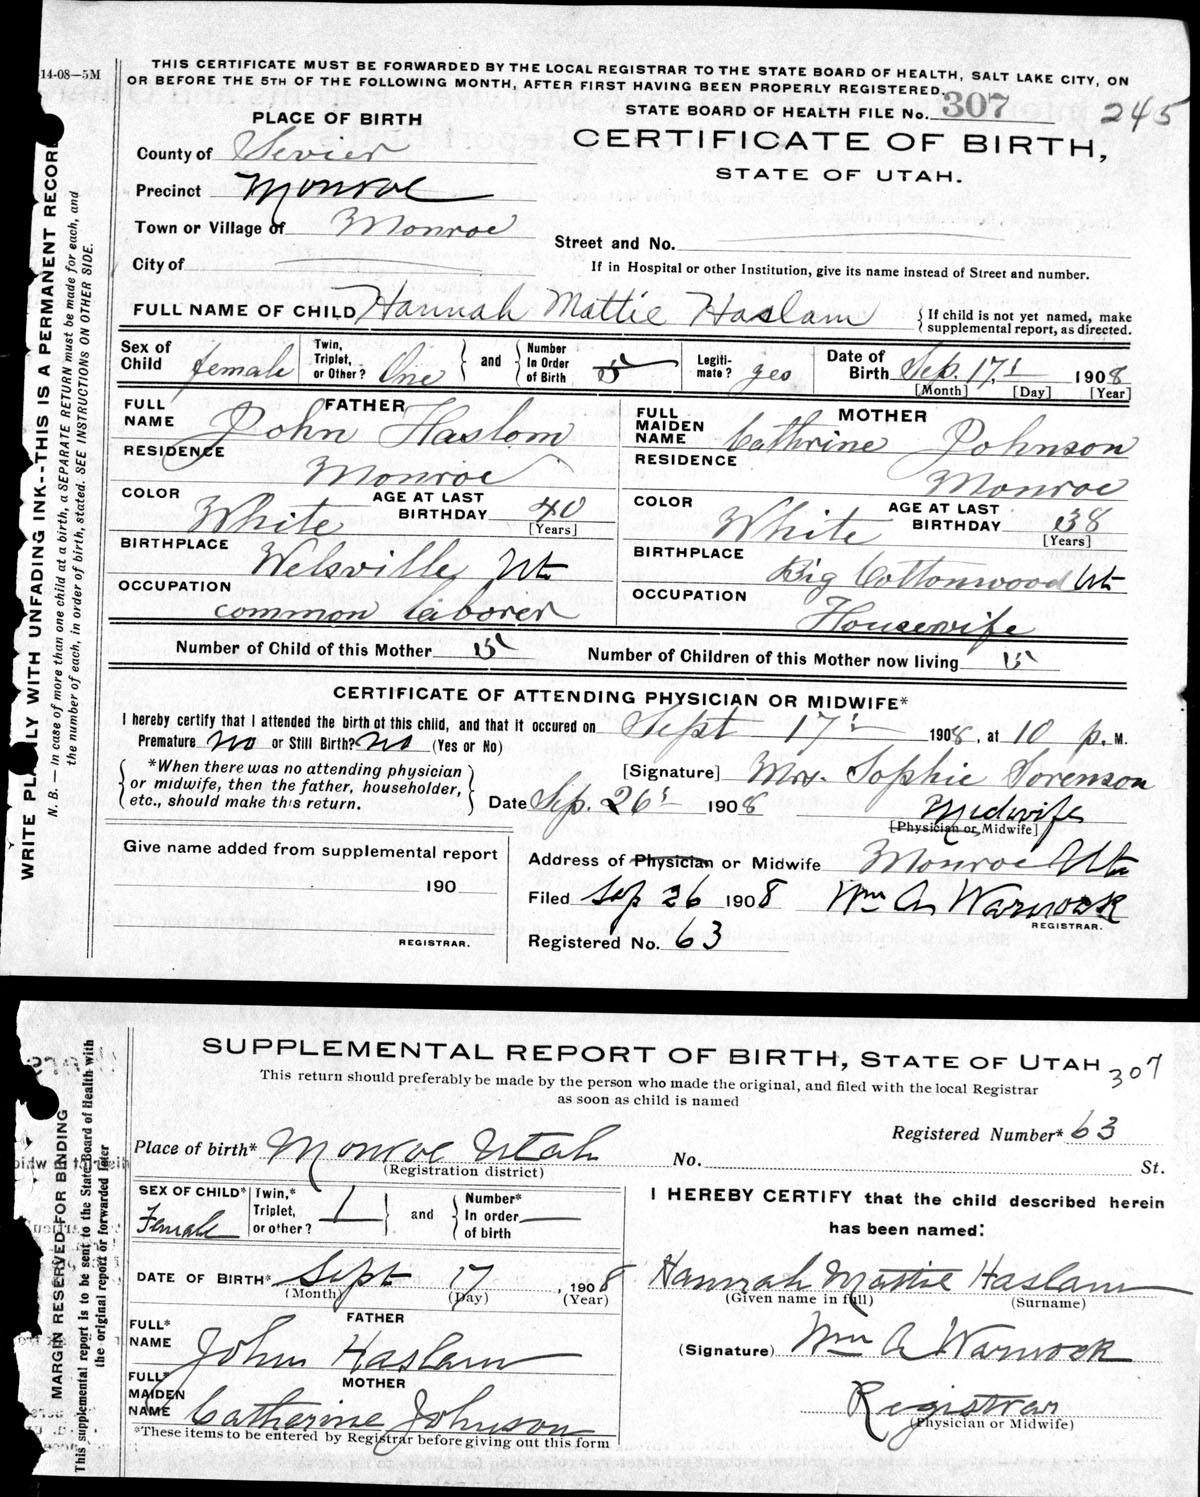 14-08—5M
THIS CERTIFICATE MUST BE FORWARDED BY THE LOCAL REGISTRAR TO THE STATE BOARD OF HEALTH, SALT LAKE CITY, ON
OR BEFORE THE 5TH OF THE FOLLOWING MONTH, AFTER FIRST HAVING BEEN PROPERLY REGISTERED.
STATE BOARD OF HEALTH FILE No. 307 245
PLACE OF BIRTH
CERTIFICATE OF BIRTH,
STATE OF UTAH.
County of Sevier
Precinct Monroe
Town or Village of Monroe
Street and No.
City of
If in Hospital or other Institution, give its name instead of Street and number.
FULL NAME OF CHILD Hannah Mattie Haslam { If child is not yet named, make supplemental report, as directed.
Sex of Child female Twin, Triplet, or Other? One and Number In Order of Birth 5 Legiti- mate? yes Date of Birth Sep. 17 1908
[Month] [Day] [Year]
FATHER
FULL NAME John Haslom
RESIDENCE Monroe
COLOR White AGE AT LAST BIRTHDAY 40 [Years]
BIRTHPLACE Welsville Ut
OCCUPATION common laborer
MOTHER
FULL MAIDEN NAME Cathrine Johnson
RESIDENCE Monroe
COLOR White AGE AT LAST BIRTHDAY 38 [Years]
BIRTHPLACE Big Cottonwood Ut
OCCUPATION Housewife
Number of Child of this Mother 5 Number of Children of this Mother now living 5
CERTIFICATE OF ATTENDING PHYSICIAN OR MIDWIFE*
I hereby certify that I attended the birth of this child, and that it occured on Sept 17 1908, at 10 p. M.
Premature No or Still Birth? No (Yes or No)
{ *When there was no attending physician or midwife, then the father, householder, etc., should make this return. }
[Signature] Mrs. Sophie Sorenson
Date Sep. 26 1908 Midwife
[Physician or Midwife]
Give name added from supplemental report
190
REGISTRAR.
Address of Physician or Midwife Monroe Ut
Filed Sep 26 1908 Wm A Warnock
REGISTRAR.
Registered No. 63
WRITE PLAINLY WITH UNFADING INK--THIS IS A PERMANENT RECORD
N. B.—In case of more than one child at a birth, a SEPARATE RETURN must be made for each, and
the number of each, in order of birth, stated. SEE INSTRUCTIONS ON OTHER SIDE.
SUPPLEMENTAL REPORT OF BIRTH, STATE OF UTAH 307
This return should preferably be made by the person who made the original, and filed with the local Registrar
as soon as child is named
Registered Number* 63
Place of birth* Monroe Utah No. St.
(Registration district)
SEX OF CHILD* Female Twin,* Triplet, or other? 1 and Number* In order of birth
DATE OF BIRTH* Sept 17, 1908
(Month) (Day) (Year)
FATHER
FULL* NAME John Haslam
MOTHER
FULL* MAIDEN NAME Catherine Johnson
*These items to be entered by Registrar before giving out this form
I HEREBY CERTIFY that the child described herein
has been named:
Hannah Mattie Haslam
(Given name in full) (Surname)
(Signature) Wm A Warnock
Registrar
(Physician or Midwife)
MARGIN RESERVED FOR BINDING
This supplemental report is to be sent to the State Board of Health with
the original report or forwarded later